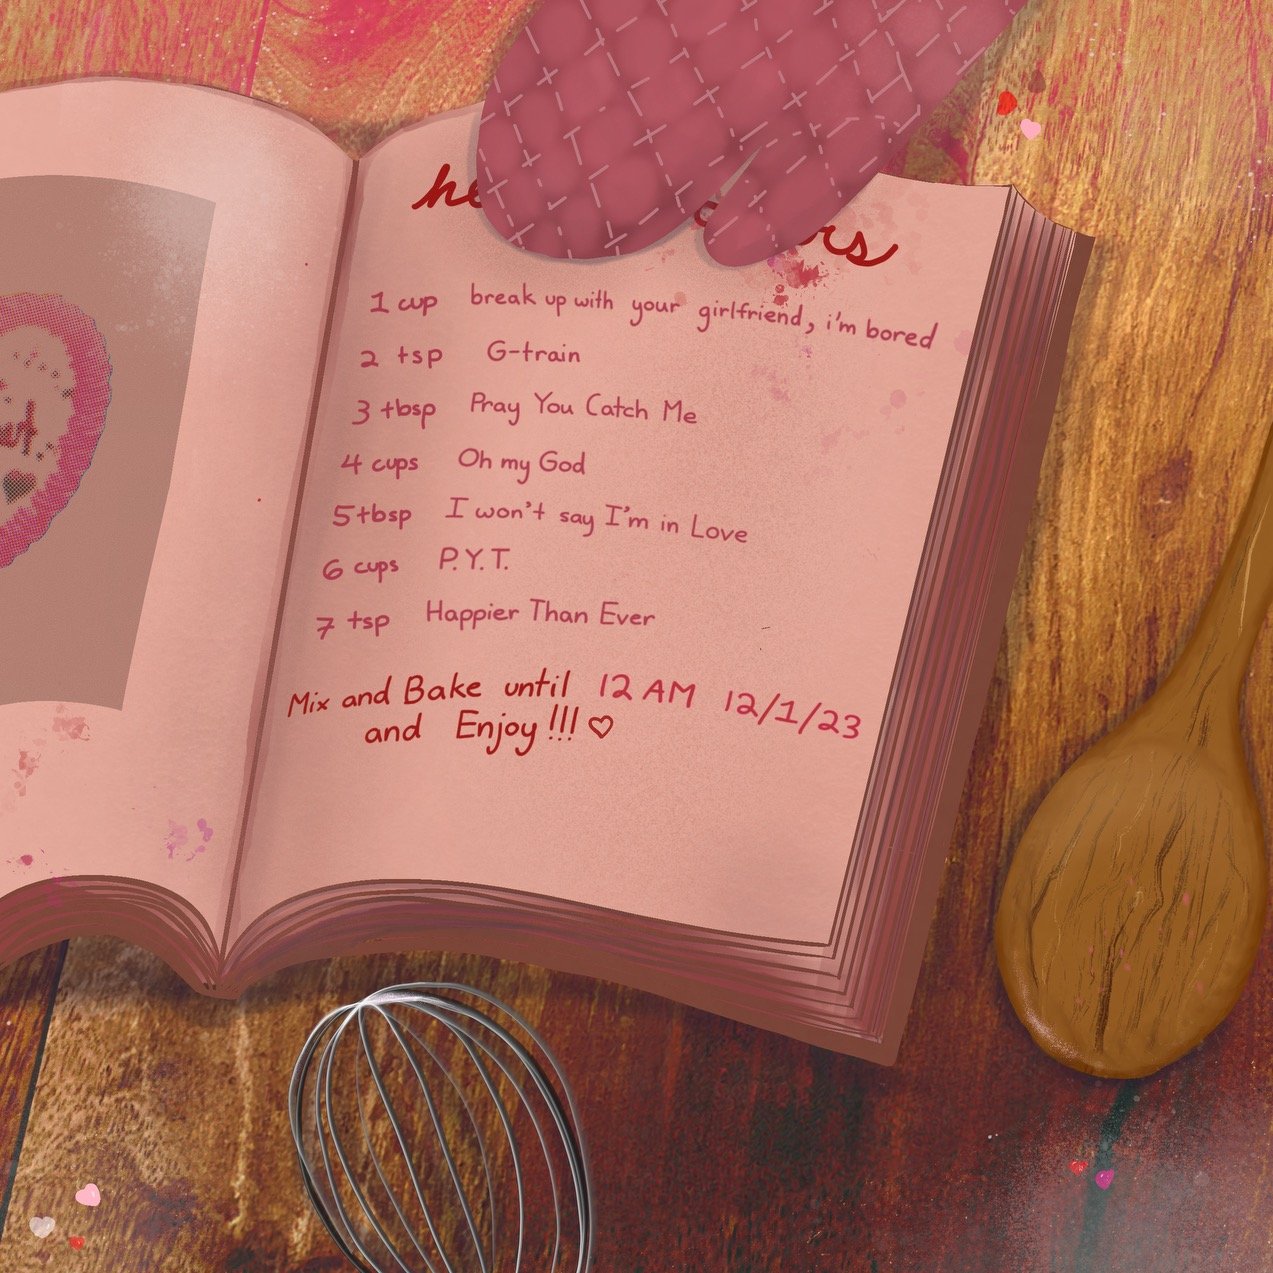 1 cup break up with your girlfriend, i'm bored
2 tsp G-train
3 tbsp Pray You Catch Me
4 cups Oh my God
5 tbsp I won't say I'm in Love
6 cups P.Y.T.
7 tsp Happier Than Ever
Mix and Bake until 12 AM 12/1/23
and Enjoy!!! ♡